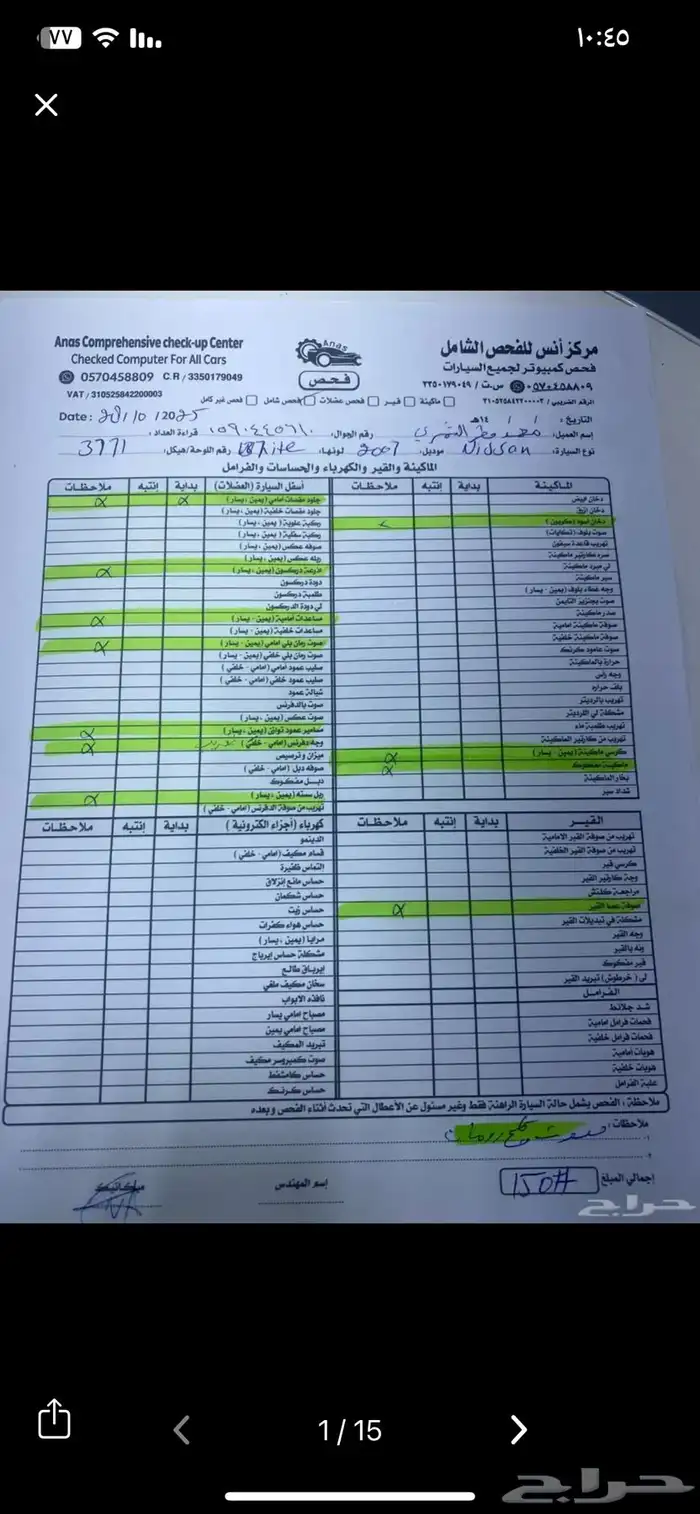 ١٠:٤٥
٧٧
Anas Comprehensive check-up Center
Checked Computer For All Cars
0570458809 C.R / 3350179049
VAT / 310525842200003
Anas
فحص
مركز أنس للفحص الشامل
فحص كمبيوتر لجميع السيارات
٠٥٧٠٤٥٨٨٠٩ س.ت / ٣٣٥٠١٧٩٠٤٩
الرقم الضريبي / ٣١٠٥٢٥٨٤٢٢٠٠٠٠٣
ماكينة قير فحص عضلات فحص شامل فحص غير كامل
Date: 28/10/2025
التاريخ: / / ١٤هـ
إسم العميل: رقم الجوال: قراءة العداد:
نوع السيارة: Nissan موديل: 2007 لونها: White رقم اللوحة/هيكل: 3771
الماكينة والقير والكهرباء والحساسات والفرامل
الماكينة بداية إنتبه ملاحظات
دخان ابيض
دخان ازرق
دخان أسود (كربون)
صوت بلوف (تكايات)
تهريب قاعدة سيفون
صره كارتير ماكينة
لي مبرد ماكينة
سير ماكينة
وجه غطاء بلوف (يمين - يسار)
صوت بجنزير التايمن
صدر ماكينة
صوفة ماكينة امامية
صوفة ماكينة خلفية
صوت عامود كرنك
حرارة بالماكينة
وجه راس
بلف حراره
تهريب بالرديتر
مشكلة لي الرديتر
تهريب طلمبة ماء
تهريب من كارتير الماكينة
كرسي ماكينة (يمين - يسار) x
ماكينة مفكوك x
بخار الماكينة
شداد سير
أسفل السيارة (العضلات) بداية إنتبه ملاحظات
جلود مقصات امامي (يمين ، يسار) x x
جلود مقصات خلفية (يمين ، يسار)
ركبة علوية (يمين ، يسار)
ركبة سفلية (يمين ، يسار)
صوفه عكس (يمين ، يسار)
ربله عكس (يمين ، يسار)
اذرعة دركسون (يمين ، يسار) x
دودة دركسون
طلمبة دركسون
لي دودة الدركسون
مساعدات امامية (يمين - يسار) x
مساعدات خلفية (يمين - يسار)
صوت رمان بلي امامي (يمين - يسار) x
صوت رمان بلي خلفي (يمين - يسار)
صليب عمود امامي (امامي - خلفي)
صليب عمود خلفي (امامي - خلفي)
شيالة عمود
صوت بالدفرنس
صوت عكس (يمين ، يسار)
مسامير عمود توازن (يمين ، يسار) x
وجه دفرنس (امامي - خلفي) x
ميزان و ترصيص
صوفه دبل (امامي - خلفي)
دبـل مفـكـوك
ربل سسته (يمين ، يسار) x
تهريب من صوفة الدفرنس (امامي - خلفي)
القير بداية إنتبه ملاحظات
تهريب من صوفة القير الامامية
تهريب من صوفة القير الخلفية
كرسي قير
وجة كارتير القير
مراجعة كلتش
صوفة عصا القير x
مشكلة في تبديلات القير
وجه القير
ونه بالقير
قير مفكوك
لي (خرطوش) تبريد القير
الفرامل
شد جلانط
فحمات فرامل امامية
فحمات فرامل خلفية
هوبات امامية
هوبات خلفية
علبة الفرامل
كهرباء (أجزاء الكترونية) بداية إنتبه ملاحظات
الدينمو
قسام مكيف (امامي - خلفي)
إلتماس ظفيرة
حساس مانع إنزلاق
حساس شكمان
حساس زيت
حساس هواء كفرات
مرايا (يمين ، يسار)
مشكلة حساس إيرباج
إيرباق طالع
سخان مكيف ملغي
نافذه الابواب
مصباح امامي يسار
مصباح امامي يمين
تبريد المكيف
صوت كمبروسر مكيف
حساس كامشفط
حساس كرنك
ملاحظة : الفحص يشمل حالة السيارة الراهنة فقط وغير مسئول عن الأعطال التي تحدث أثناء الفحص و بعده
ملاحظات :
١-
٢-
إجمالي المبلغ 150#
إسم المهندس
ميكانيك
حراج
1 / 15
حراج